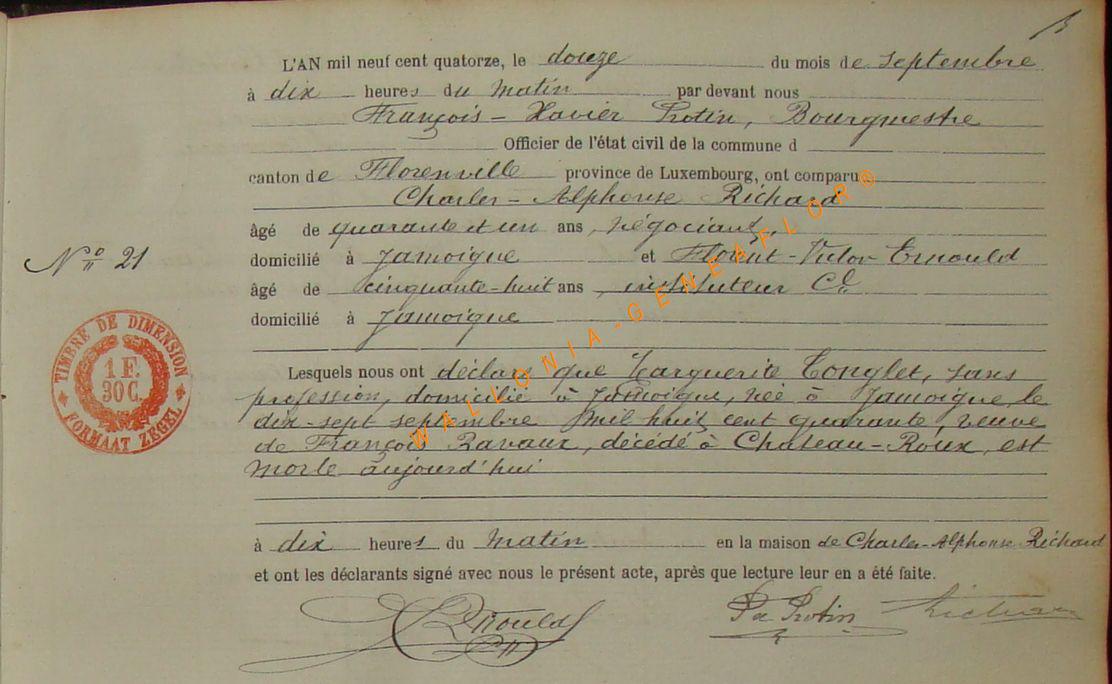 L'AN mil neuf cent quatorze, le douze du mois de septembre
à dix heures du matin par devant nous
François-Xavier Protin, Bourgmestre
Officier de l'état civil de la commune d
canton de Florenville province de Luxembourg, ont comparu
Charles-Alphonse Richard
âgé de quarante et un ans, négociant,
N° 21
domicilié à Jamoigne et Florent-Victor Ernould
âgé de cinquante-huit ans, instituteur Cl
domicilié à Jamoigne
TIMBRE DE DIMENSION
1 F.
30 C.
FORMAAT ZEGEL
WALLONIA-GENEAFLOR®
Lesquels nous ont déclaré que Marguerite Tonglet, sans
profession, domicilié à Jamoigne, née à Jamoigne, le
dix-sept septembre mil huit cent quarante, veuve
de François Ravaux, décédé à Chateau-Roux, est
morte aujourd'hui
à dix heures du matin en la maison de Charles-Alphonse Richard
et ont les déclarants signé avec nous le présent acte, après que lecture leur en a été faite.
Ernould Protin Richard